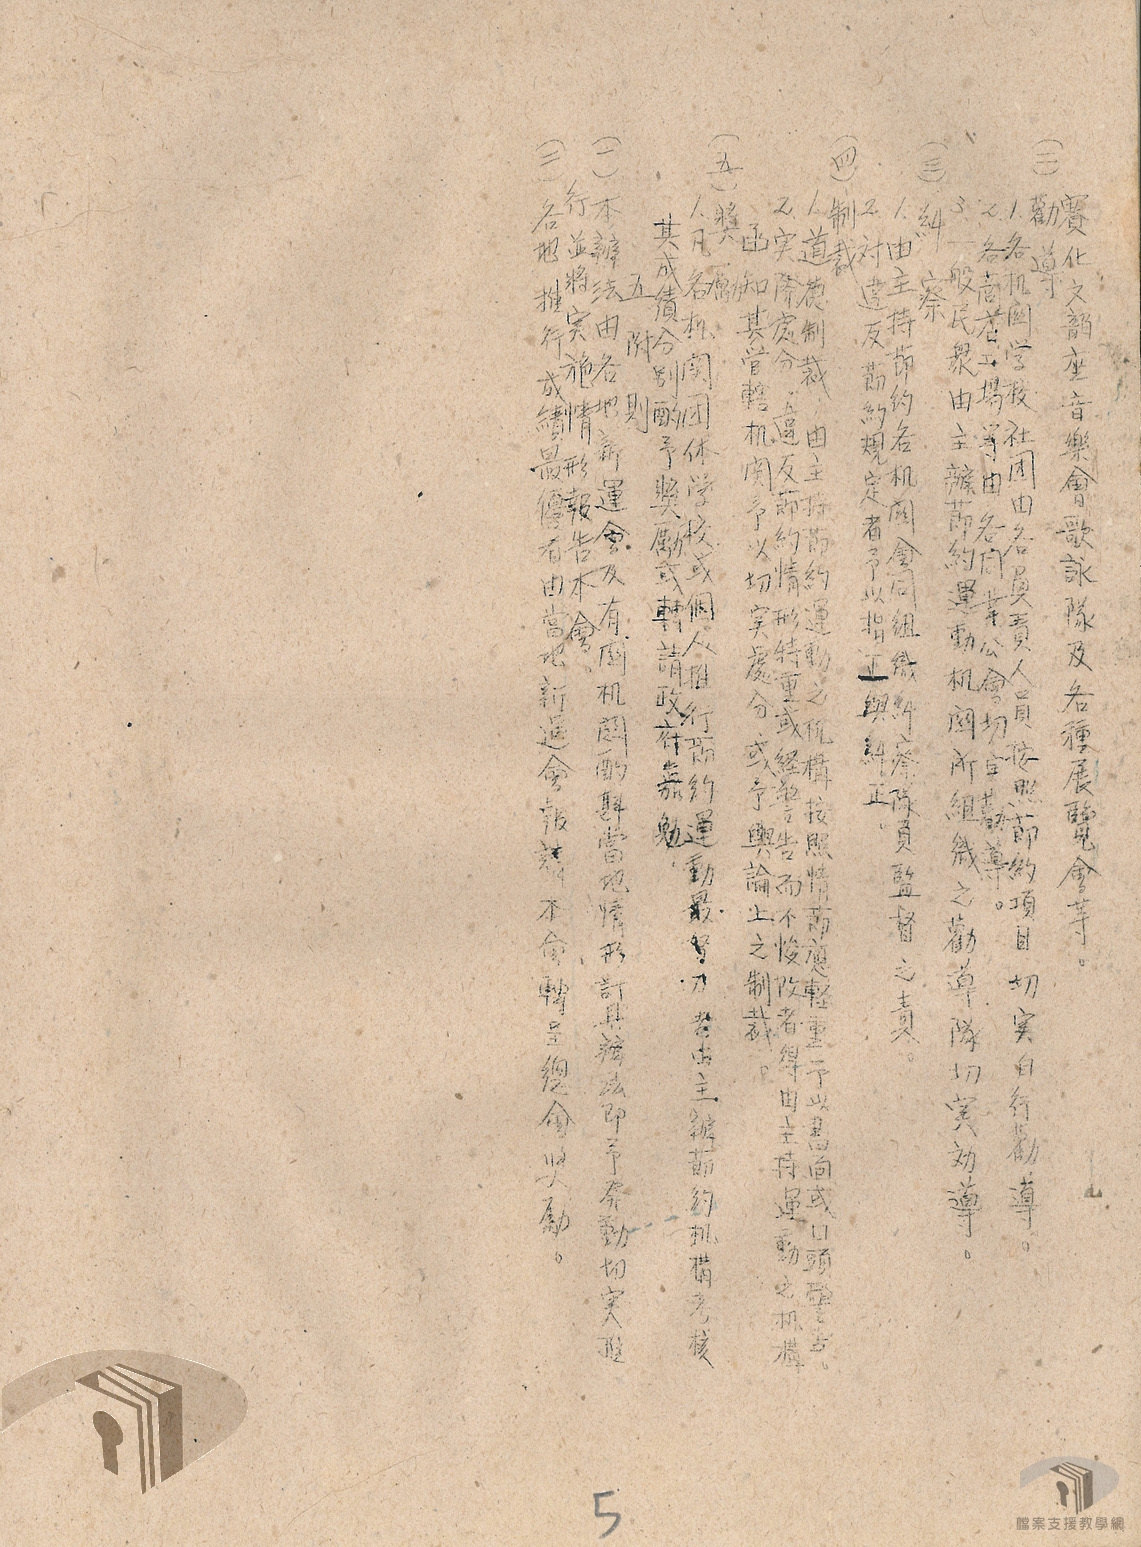 賽化文韻座音樂會歌詠隊及各種展覽會等。
(二)勸導
1.各机関学校社団由各負責人員按照節約項目切实自行勸導。
2.各商店工場等由各同業公會切实勸導。
3.一般民眾由主辦節約運動机関所組織之勸導隊切实効導。
(三)糾察
1.由主持節約各机関會同組織糾察隊員監督之責。
2.対違反節約規定者予以指正與糾正。
(四)制裁
1.道德制裁 由主持節約運動之机構按照情節應輕重予以書面或口頭警告。
2.实際處分 違反節約情形特重或経警告而不悛改者得由主持運動之机構
函知其管轄机関予以切实處分或予輿論上之制裁。
(五)獎勵
1.凡各机関団体学校或個人推行節約運動最努力者由主辦節約机構考核
其成績分别酌予獎勵或轉請政府嘉勉
五 附則
(一)本辦法由各地新運會及有関机関酌斟當地情形訂具辦法即予發動切实推
行並將实施情形報告本會。
(二)各地推行成績最優者由當地新運會報請本會轉呈總會獎勵。
5
檔案支援教學網